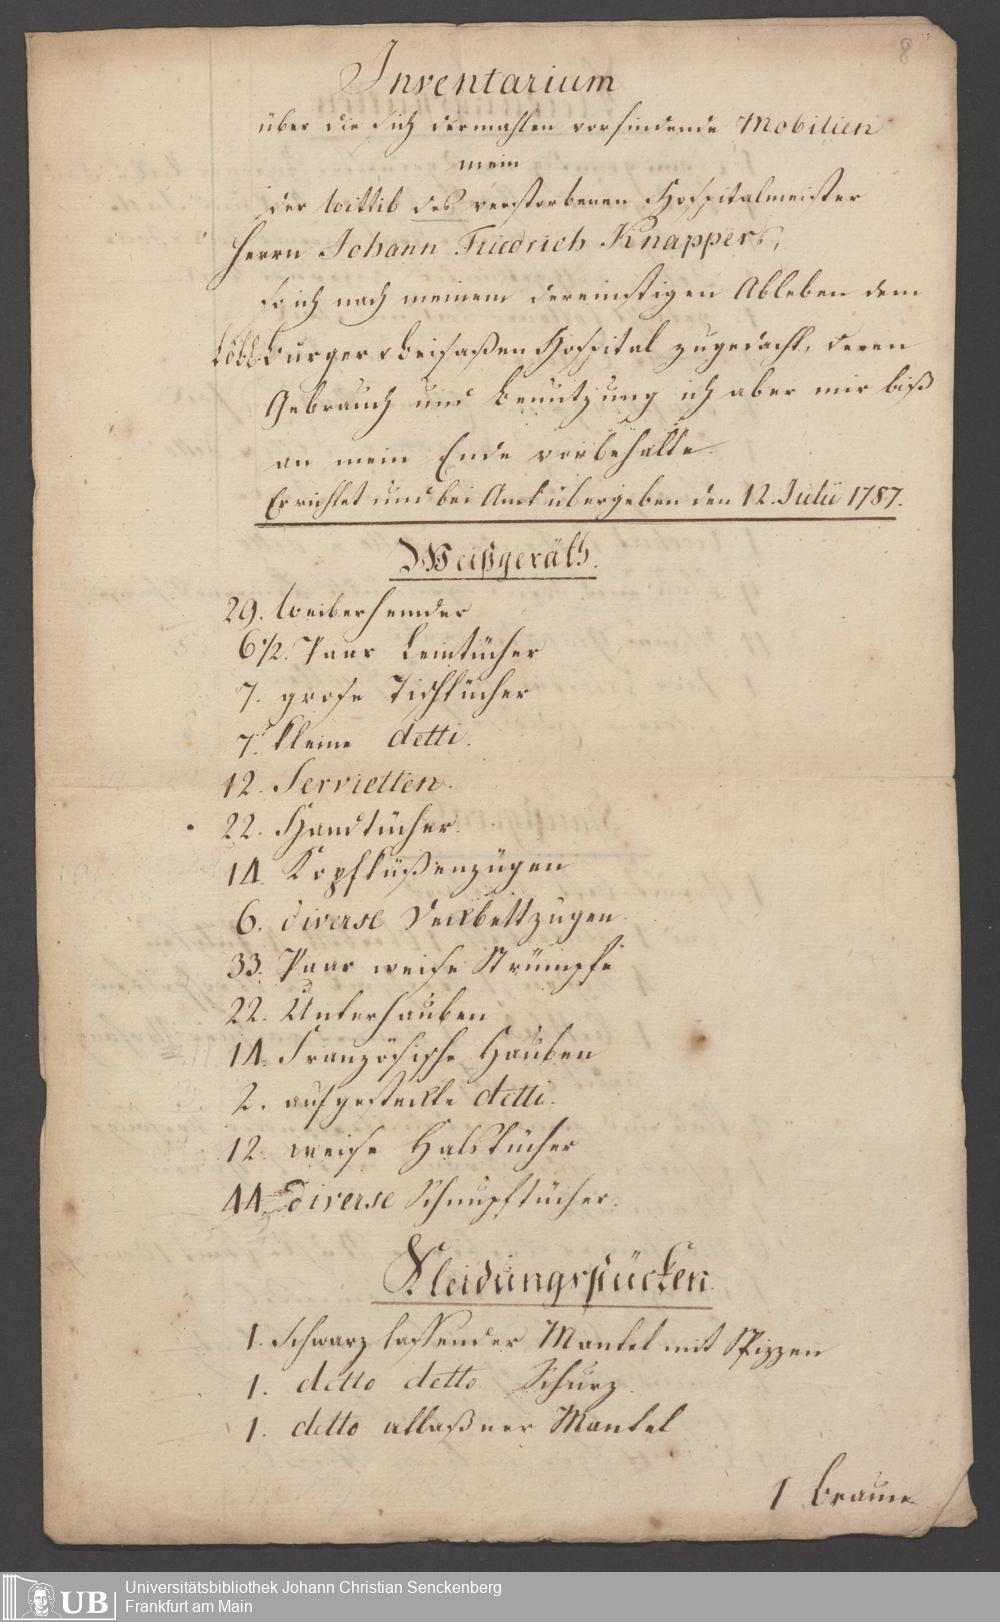 8
Inventarium
über die sich dermahlen vorfindende Mobilien
mein
der Wittib des verstorbenen Hospitalmeister
Herrn Johann Friedrich Knappers,
so ich nach meinem dereinstigen Ableben dem
Löbl. Burger & Beisaßen Hospital zugedacht, deren
Gebrauch und Benutzung ich aber mir biß
an mein Ende vorbehalte.
Errichtet und bei Amt übergeben den 12. Julii 1787.
Weißgeräth.
29. Weiberhemder
6 1/2. Paar Leintücher
7. grose Tischtücher
7. kleine detti.
12. Servietten.
22. Handtücher.
14. Kopfküßenzügen
6. diverse Deckbettzügen
33. Paar weise Strümpfe
22. Unterhauben
14. Französische Hauben
2. aufgesteckte detti.
12. weise Halstücher
44. diverse Schnupftücher.
Kleidungsstücken.
1. Schwarz taffender Mantel mit Spizzen
1. detto detto Schurz
1. detto atlaßner Mantel
1 braune
Universitätsbibliothek Johann Christian Senckenberg
Frankfurt am Main
UB